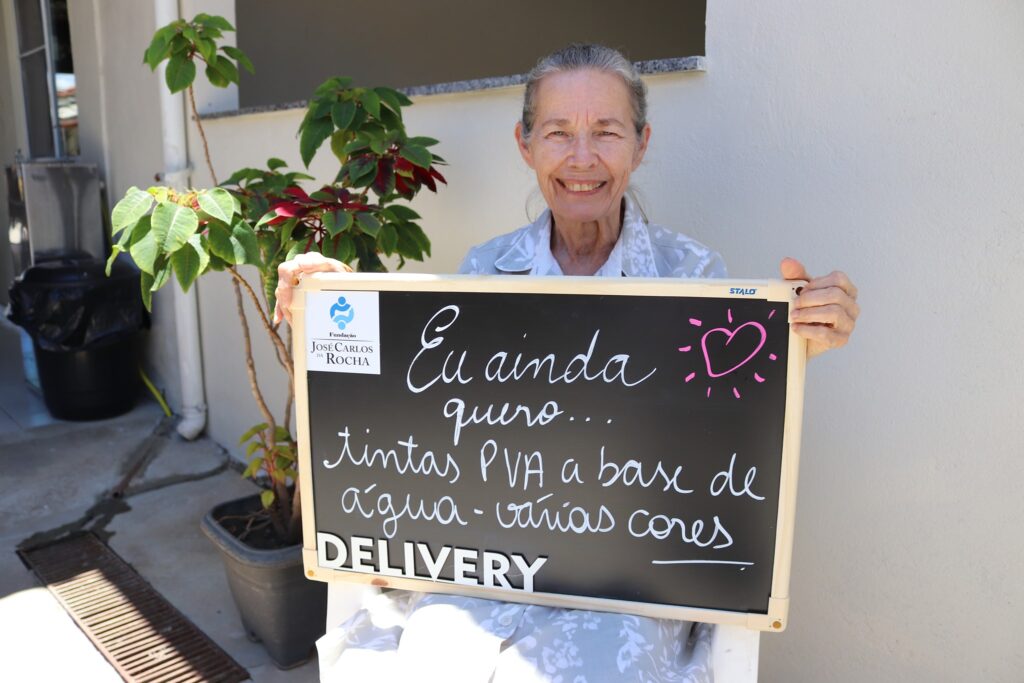 STALO
Fundação
JOSÉ CARLOS
DA ROCHA
Eu ainda
quero...
tintas PVA a base de
água - várias cores
DELIVERY